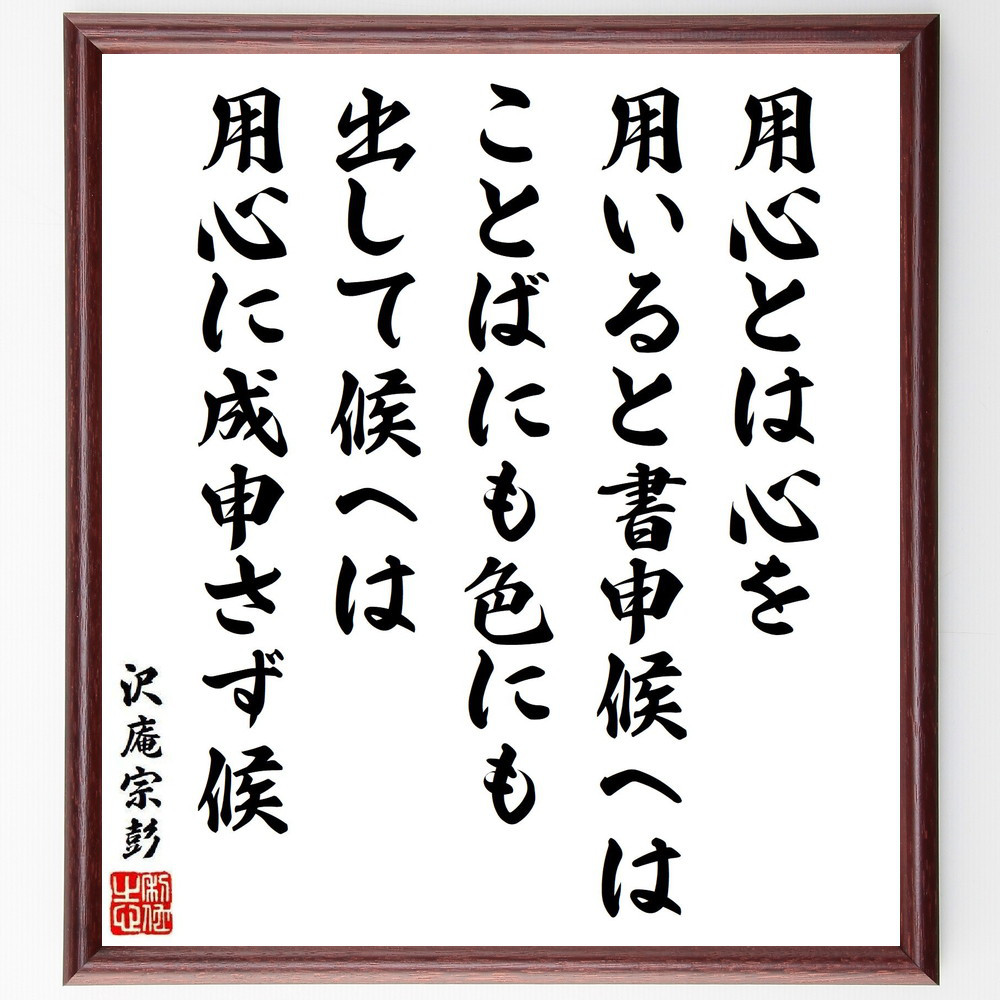 用心とは心を
用いると書申候へは
ことばにも色にも
出して候へは
用心に成申さず候
沢庵宗彭